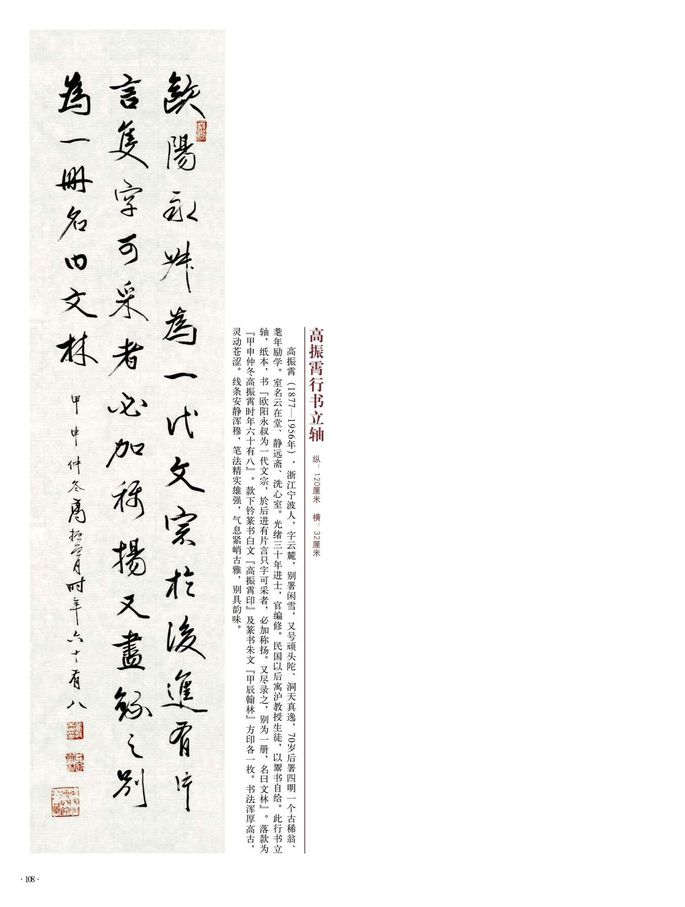 歐陽永叔為一代文宗於後進有片
言隻字可采者必加稱揚又盡錄之別
為一冊名曰文林
甲申仲冬高振霄时年六十有八
高振霄行书立轴
纵：120厘米　横：32厘米
高振霄（1877—1956年），浙江宁波人，字云麓，别署闲雪，又号顽头陀、洞天真逸，70岁后署四明一个古稀翁、
耄年励学。室名云在堂、静远斋、洗心室。光绪三十年进士，官编修。民国以后寓沪教授生徒，以鬻书自给。此行书立
轴，纸本，书『欧阳永叔为一代文宗，於后进有片言只字可采者，必加称扬。又尽录之，别为一册，名曰文林』。落款为
『甲申仲冬高振霄时年六十有八』。款下钤篆书白文『高振霄印』及篆书朱文『甲辰翰林』方印各一枚。书法浑厚高古，
灵动苍涩。线条安静浑穆，笔法精实雄强，气息紧峭古雅，别具韵味。
·108·